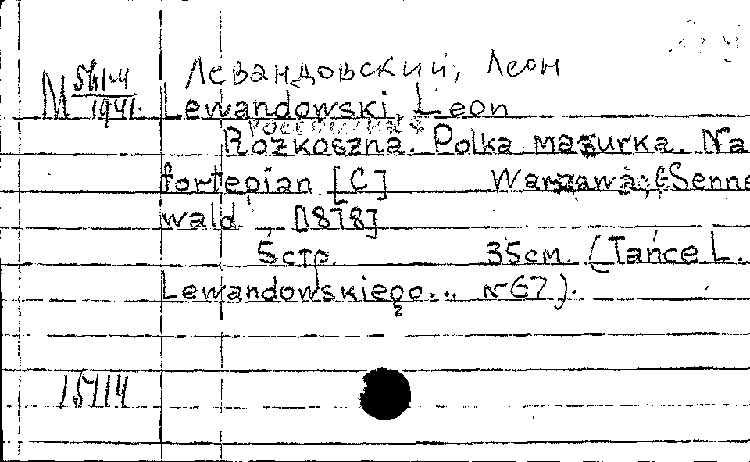 Левандовский, Леон
М 561-4
1941. Lewandowski, Leon
Rozkoszna. Polka mazurka. Na
fortepian [C] Warszawa, G. Senne
wald, [1878]
5 стр. 35 см. (Tańce L.
Lewandowskiego... № 67).
15714